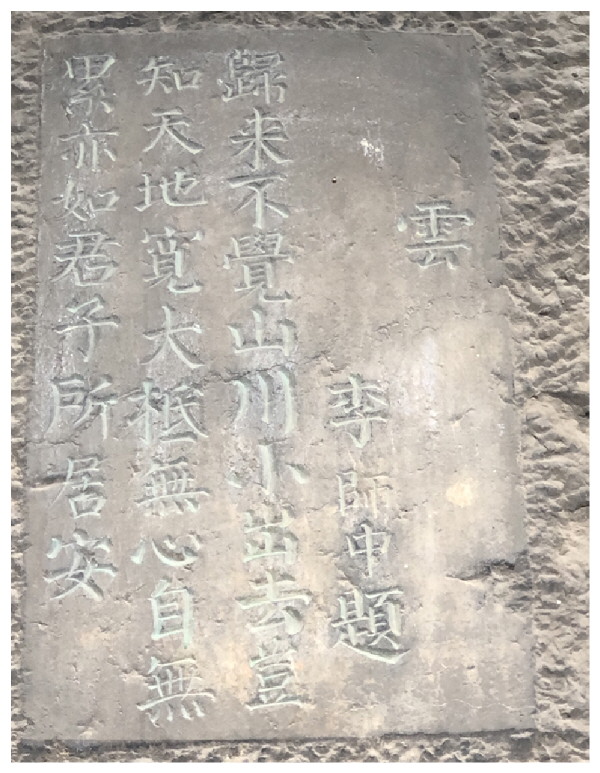 雲
李師中題
歸来不覺山川小出去豈
知天地寛大抵無心自無
累亦如君子所居安